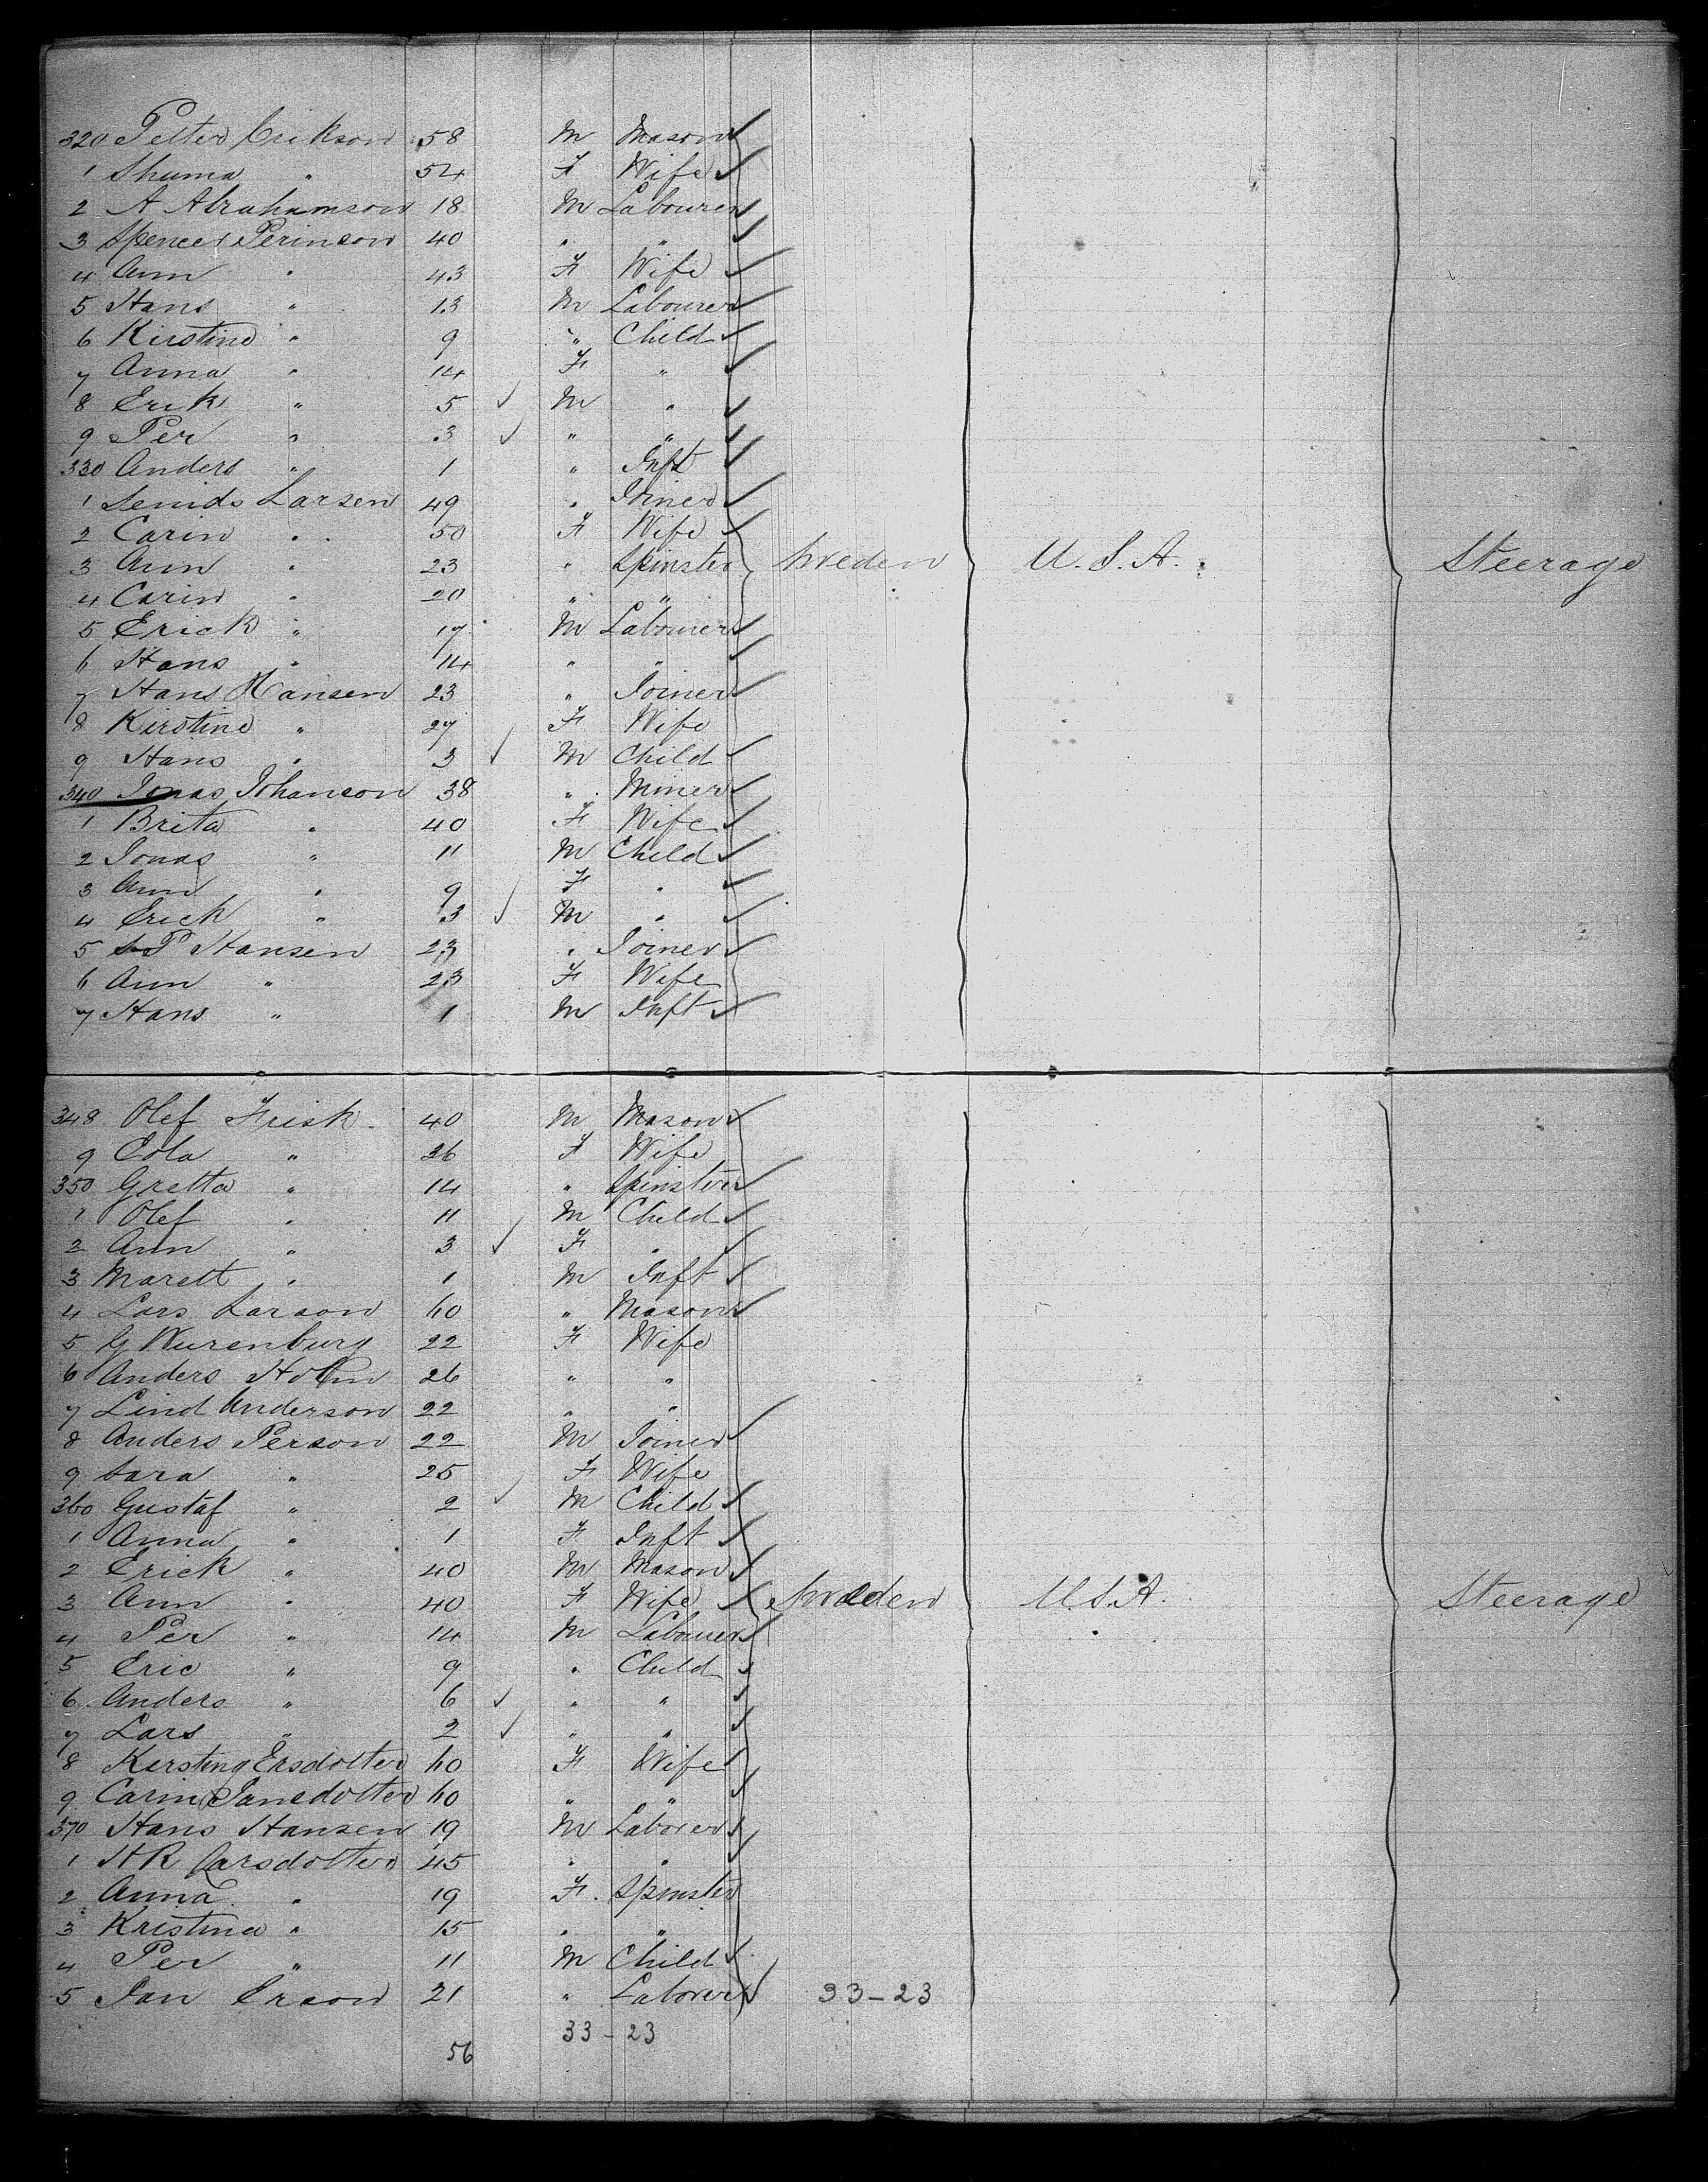 320 Petter Erikson 58 M Mason
1 Shuma " 54 F Wife
2 A Abrahamson 18 M Labourer
3 Spencer Perinson 40 " "
4 Ann " 43 F Wife
5 Hans " 13 M Labourer
6 Kirstine " 9 " Child
7 Anna " 14 F "
8 Erik " 5 M "
9 Per " 3 " "
330 Anders " 1 " Inft
1 Larsen 49 " Joiner
2 Carin " 50 F Wife
3 Ann " 23 " Spinster Sweden U.S.A. Steerage
4 Carin " 20 " "
5 Erick " 17 M Labourer
6 Hans " 14 " "
7 Hans Hansen 23 " Joiner
8 Kerstine " 27 F Wife
9 Hans " 3 M Child
340 Jonas Johanson 38 " Miner
1 Brita " 40 F Wife
2 Jonas " 11 M Child
3 Ann " 9 F "
4 Erick " 3 M "
5 P Hansen 23 " Joiner
6 Ann " 23 F Wife
7 Hans " 1 M Inft
348 Olef Frisk 40 M Mason
9 Cola " 36 F Wife
350 Gretta " 14 " Spinster
1 Olef " 11 M Child
2 Ann " 3 F "
3 Marett " 1 M Inft
4 Lars Larson 60 " Mason
5 G Wurenburg 22 F Wife
6 Anders Holm 26 " "
7 Lind Anderson 22 " "
8 Anders Person 22 M Joiner
9 Sara " 25 F Wife
360 Gustaf " 2 M Child
1 Anna " 1 F Inft
2 Erick " 40 M Mason
3 Ann " 40 F Wife Sweden U.S.A. Steerage
4 Per " 14 M Labourer
5 Eric " 9 " Child
6 Anders " 6 " "
7 Lars " 2 " "
8 Kersting Ersdotter 60 F Wife
9 Carin Jansdotter 60 " "
370 Hans Hansen 19 M Laborer
1 H R Larsdotter 45 " "
2 Anna " 19 F Spinster
3 Kristina " 15 " "
4 Per " 11 M Child
5 Jan Erson 21 " Laborer 33-23
33-23
56